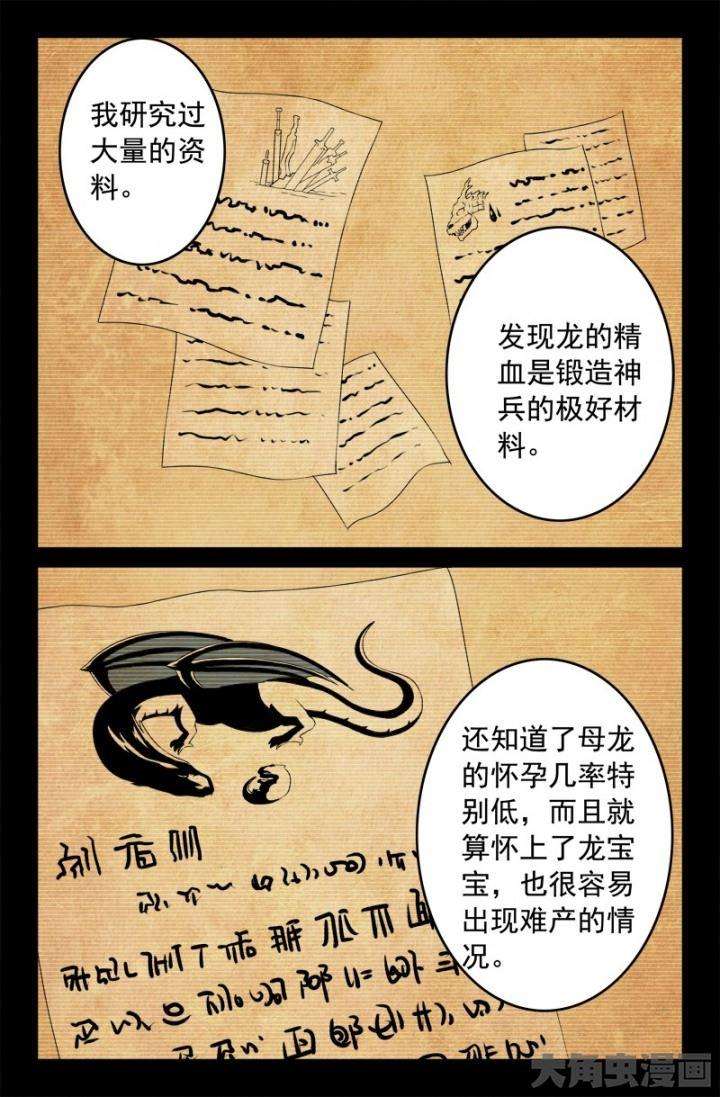 我研究过
大量的资
料。
发现龙的精
血是锻造神
兵的极好材
料。
还知道了母龙
的怀孕几率特
别低，而且就
算怀上了龙宝
宝，也很容易
出现难产的情
况。
大角虫漫画